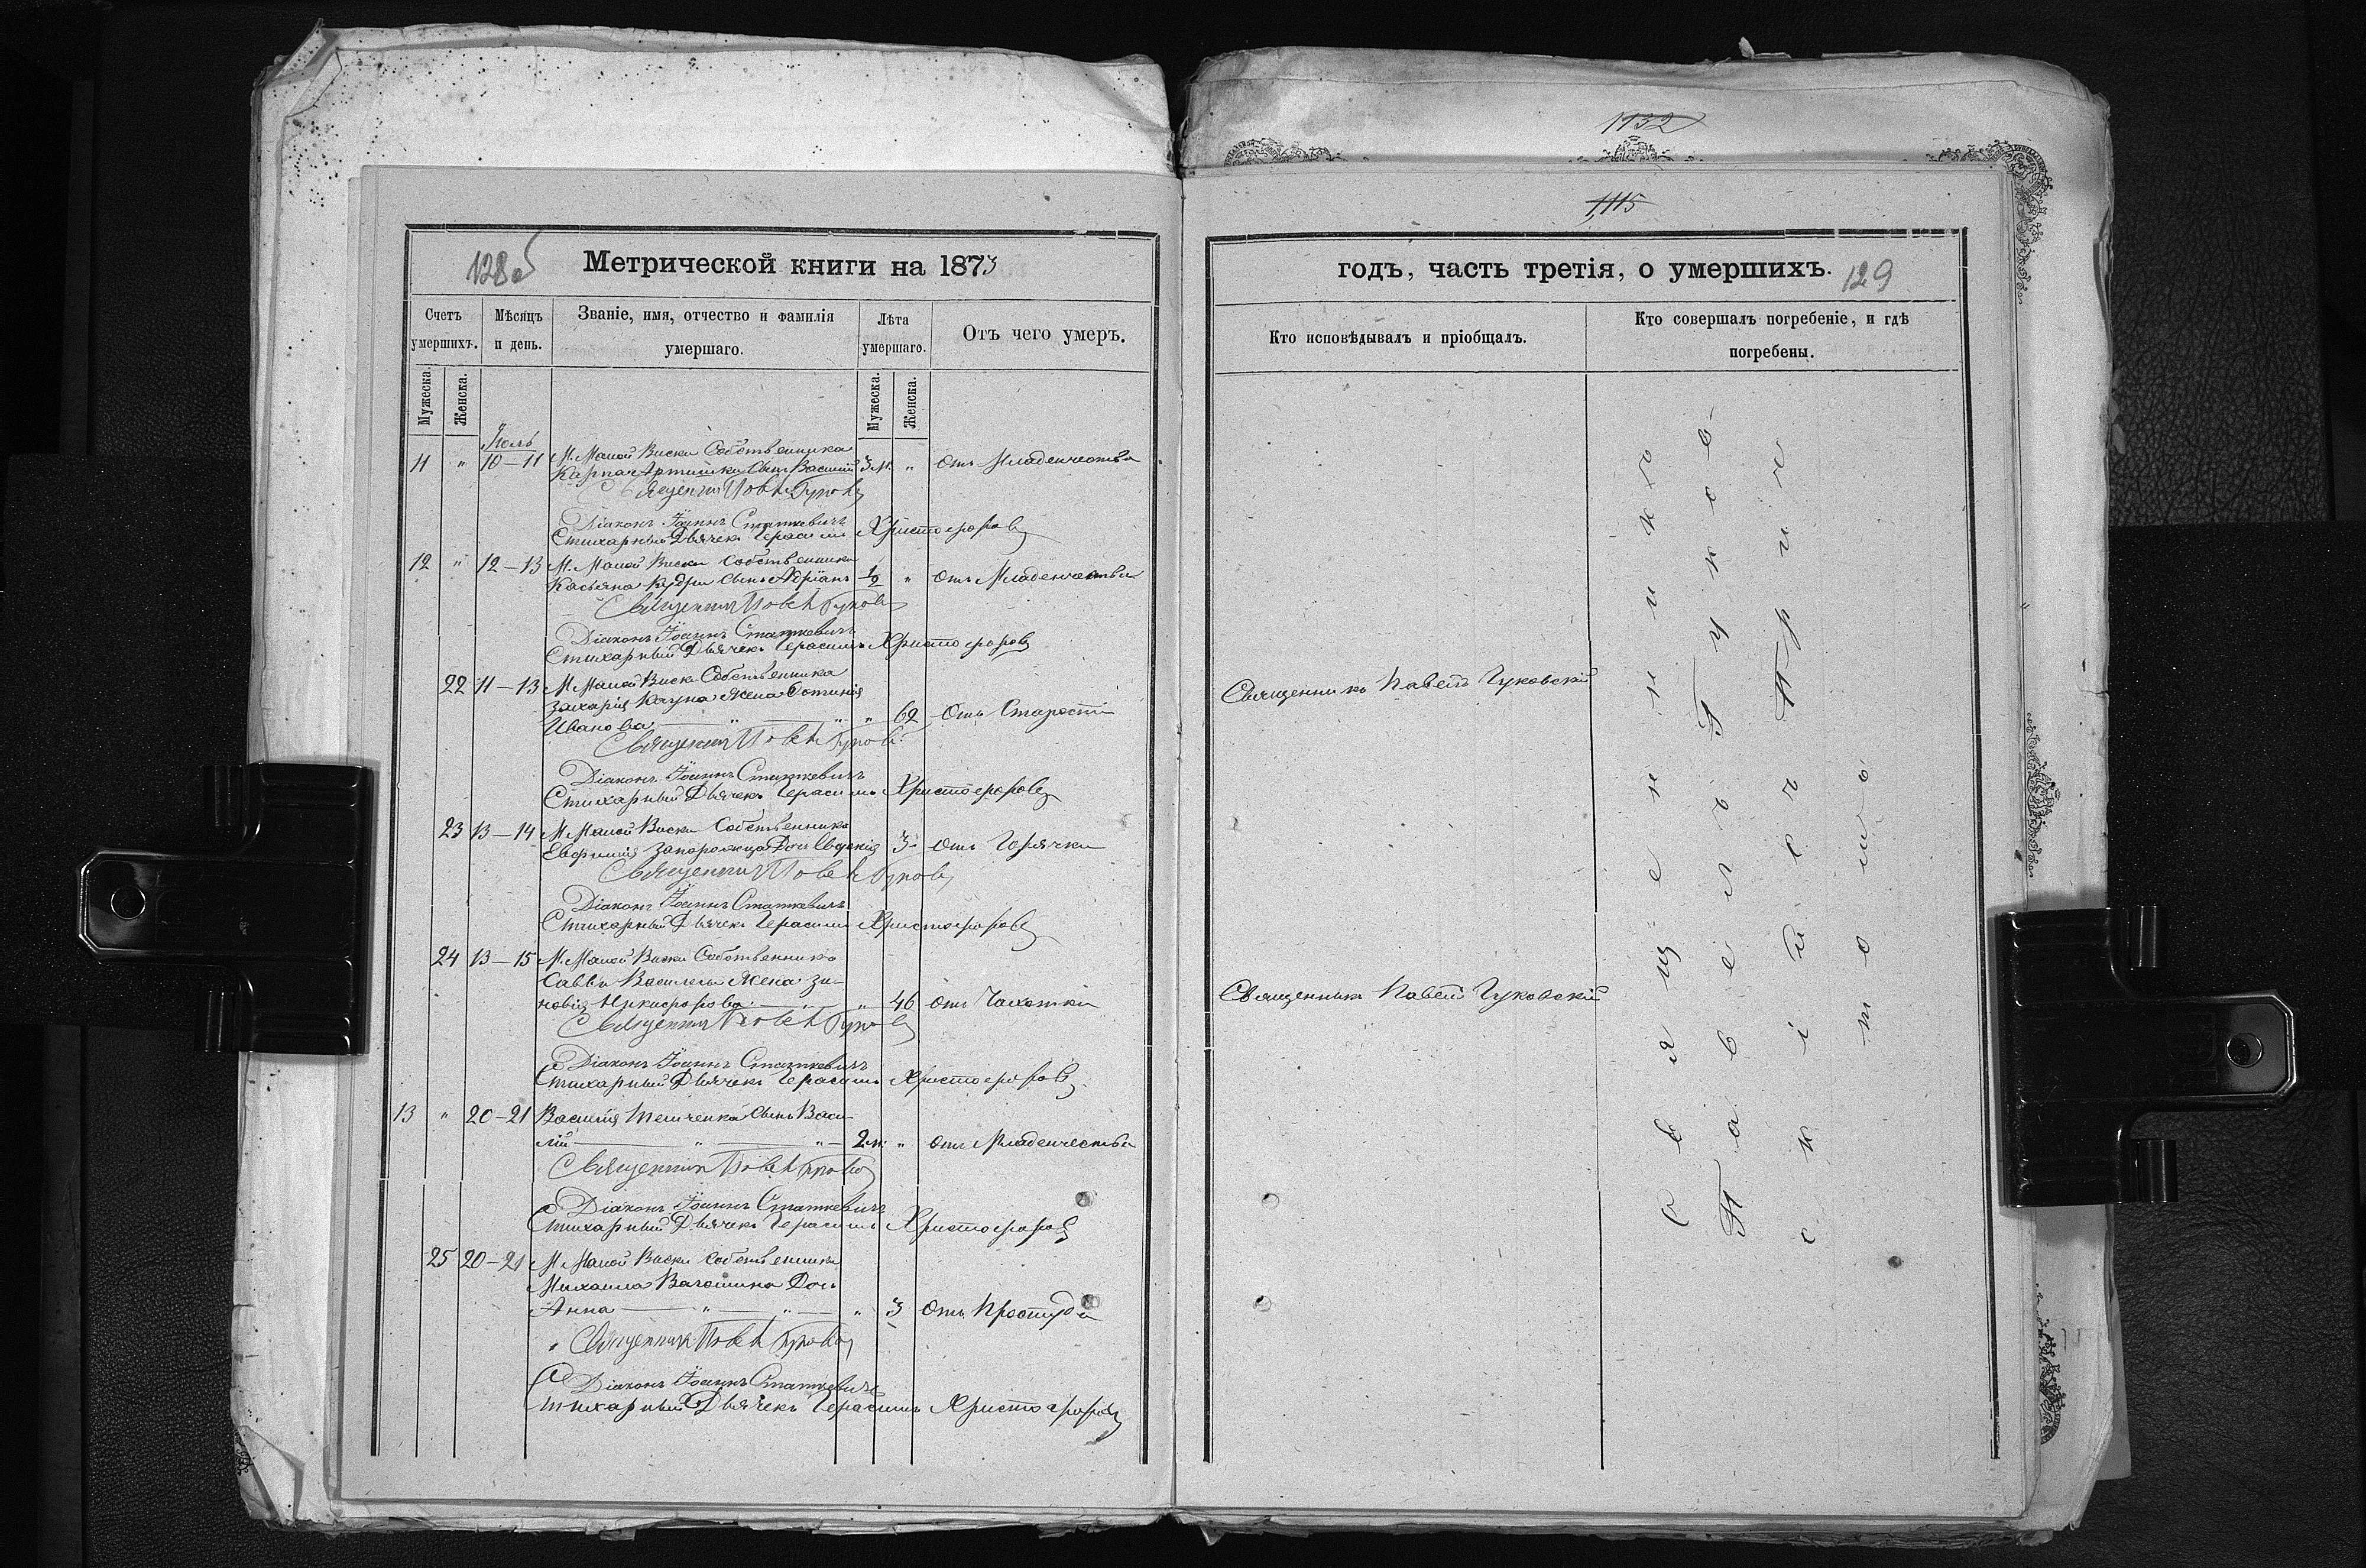 1132
1115
128об
Метрической книги на 1873
Счетъ умершихъ.
Мѣсяцъ и день.
Званіе, имя, отчество и фамилія умершаго.
Лѣта умершаго.
Отъ чего умеръ.
Мужеска.
Женска.
Мужеска.
Женска.
Іюль
11 " 10–11 М. Малой Виски Собственника
Карпа Сынъ Василій 3 м. " Отъ Младенчества
Священникъ Павелъ
Діаконъ Іоаннъ Статкевичъ
Стихарный Дьячекъ Герасимъ Христофоровъ
12 " 12–13 М. Малой Виски Собственника
Касьяна Кудри сынъ Адріанъ 1/2 " Отъ Младенчества
Священникъ Павелъ
Діаконъ Іоаннъ Статкевичъ
Стихарный Дьячекъ Герасимъ Христофоровъ
22 11–13 М. Малой Виски Собственника
Захарія Жена Фотинія
Иванова " " " 62 Отъ Старости
Священникъ Павелъ
Діаконъ Іоаннъ Статкевичъ
Стихарный Дьячекъ Герасимъ Христофоровъ
23 13–14 М. Малой Виски Собственника
Евфимія Запорожца Дочь Евдокія 3 Отъ Горячки
Священникъ Павелъ
Діаконъ Іоаннъ Статкевичъ
Стихарный Дьячекъ Герасимъ Христофоровъ
24 13–15 М. Малой Виски Собственника
Саввы Жена Зи-
новія Никифорова " " 46 Отъ Чахотки
Священникъ Павелъ
Діаконъ Іоаннъ Статкевичъ
Стихарный Дьячекъ Герасимъ Христофоровъ
13 " 20–21 Василія Сынъ Васи-
лій " " 2 м. " Отъ Младенчества
Священникъ Павелъ
Діаконъ Іоаннъ Статкевичъ
Стихарный Дьячекъ Герасимъ Христофоровъ
25 20–21 М. Малой Виски Собственника
Михаила Дочь
Анна " " " 3 Отъ Простуды
Священникъ Павелъ
Діаконъ Іоаннъ Статкевичъ
Стихарный Дьячекъ Герасимъ Христофоровъ
годъ, часть третія, о умершихъ.
129
Кто исповѣдывалъ и пріобщалъ.
Кто совершалъ погребеніе, и гдѣ погребены.
Священникъ Павелъ Гуковскій
Священникъ Павелъ Гуковскій
Священникъ
Павелъ Гуковс-
кій съ Прич-
томъ